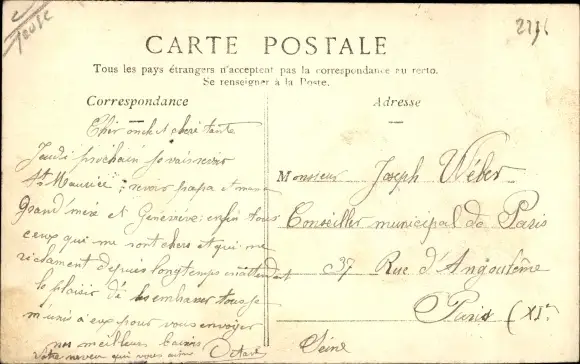 2276
CARTE POSTALE
Tous les pays étrangers n'acceptent pas la correspondance au recto.
Se renseigner à la Poste.
Correspondance
Adresse
Cher oncle et chère tante
Jeudi prochain je vais revoir
St Maurice ; revoir papa et maman
Grand'mère et Geneviève : enfin tous
ceux qui me sont chers et qui me
réclament depuis longtemps en attendant
le plaisir de les embrasser tous je
m'unis à eux pour vous envoyer
nos meilleurs baisers
Votre neveu qui vous aime Octave
Monsieur Joseph Wéber
Conseiller municipal de Paris
37 Rue d'Angoulême
Paris (XIe
Seine